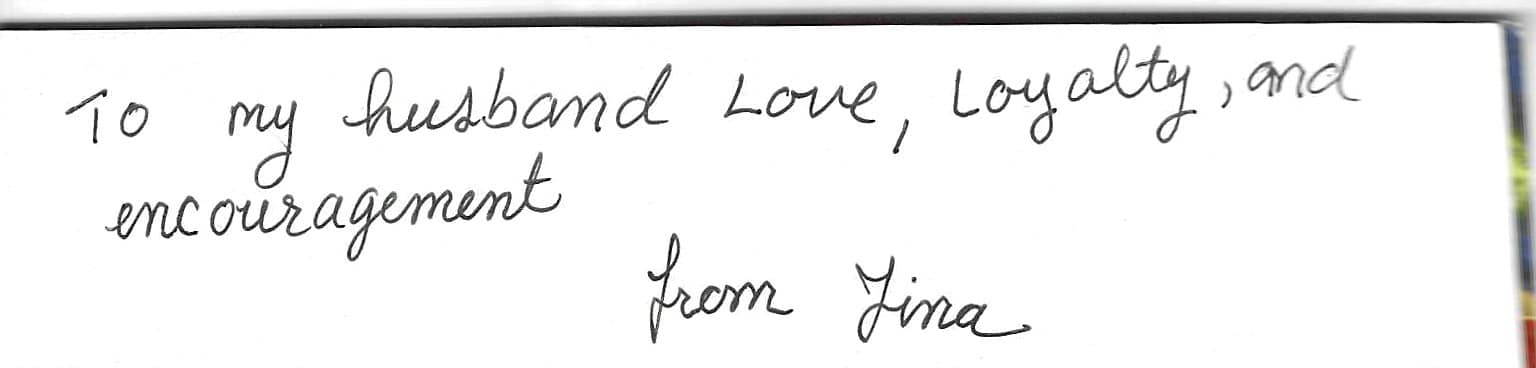 To my husband Love, Loyalty, and
encouragement
from Yina